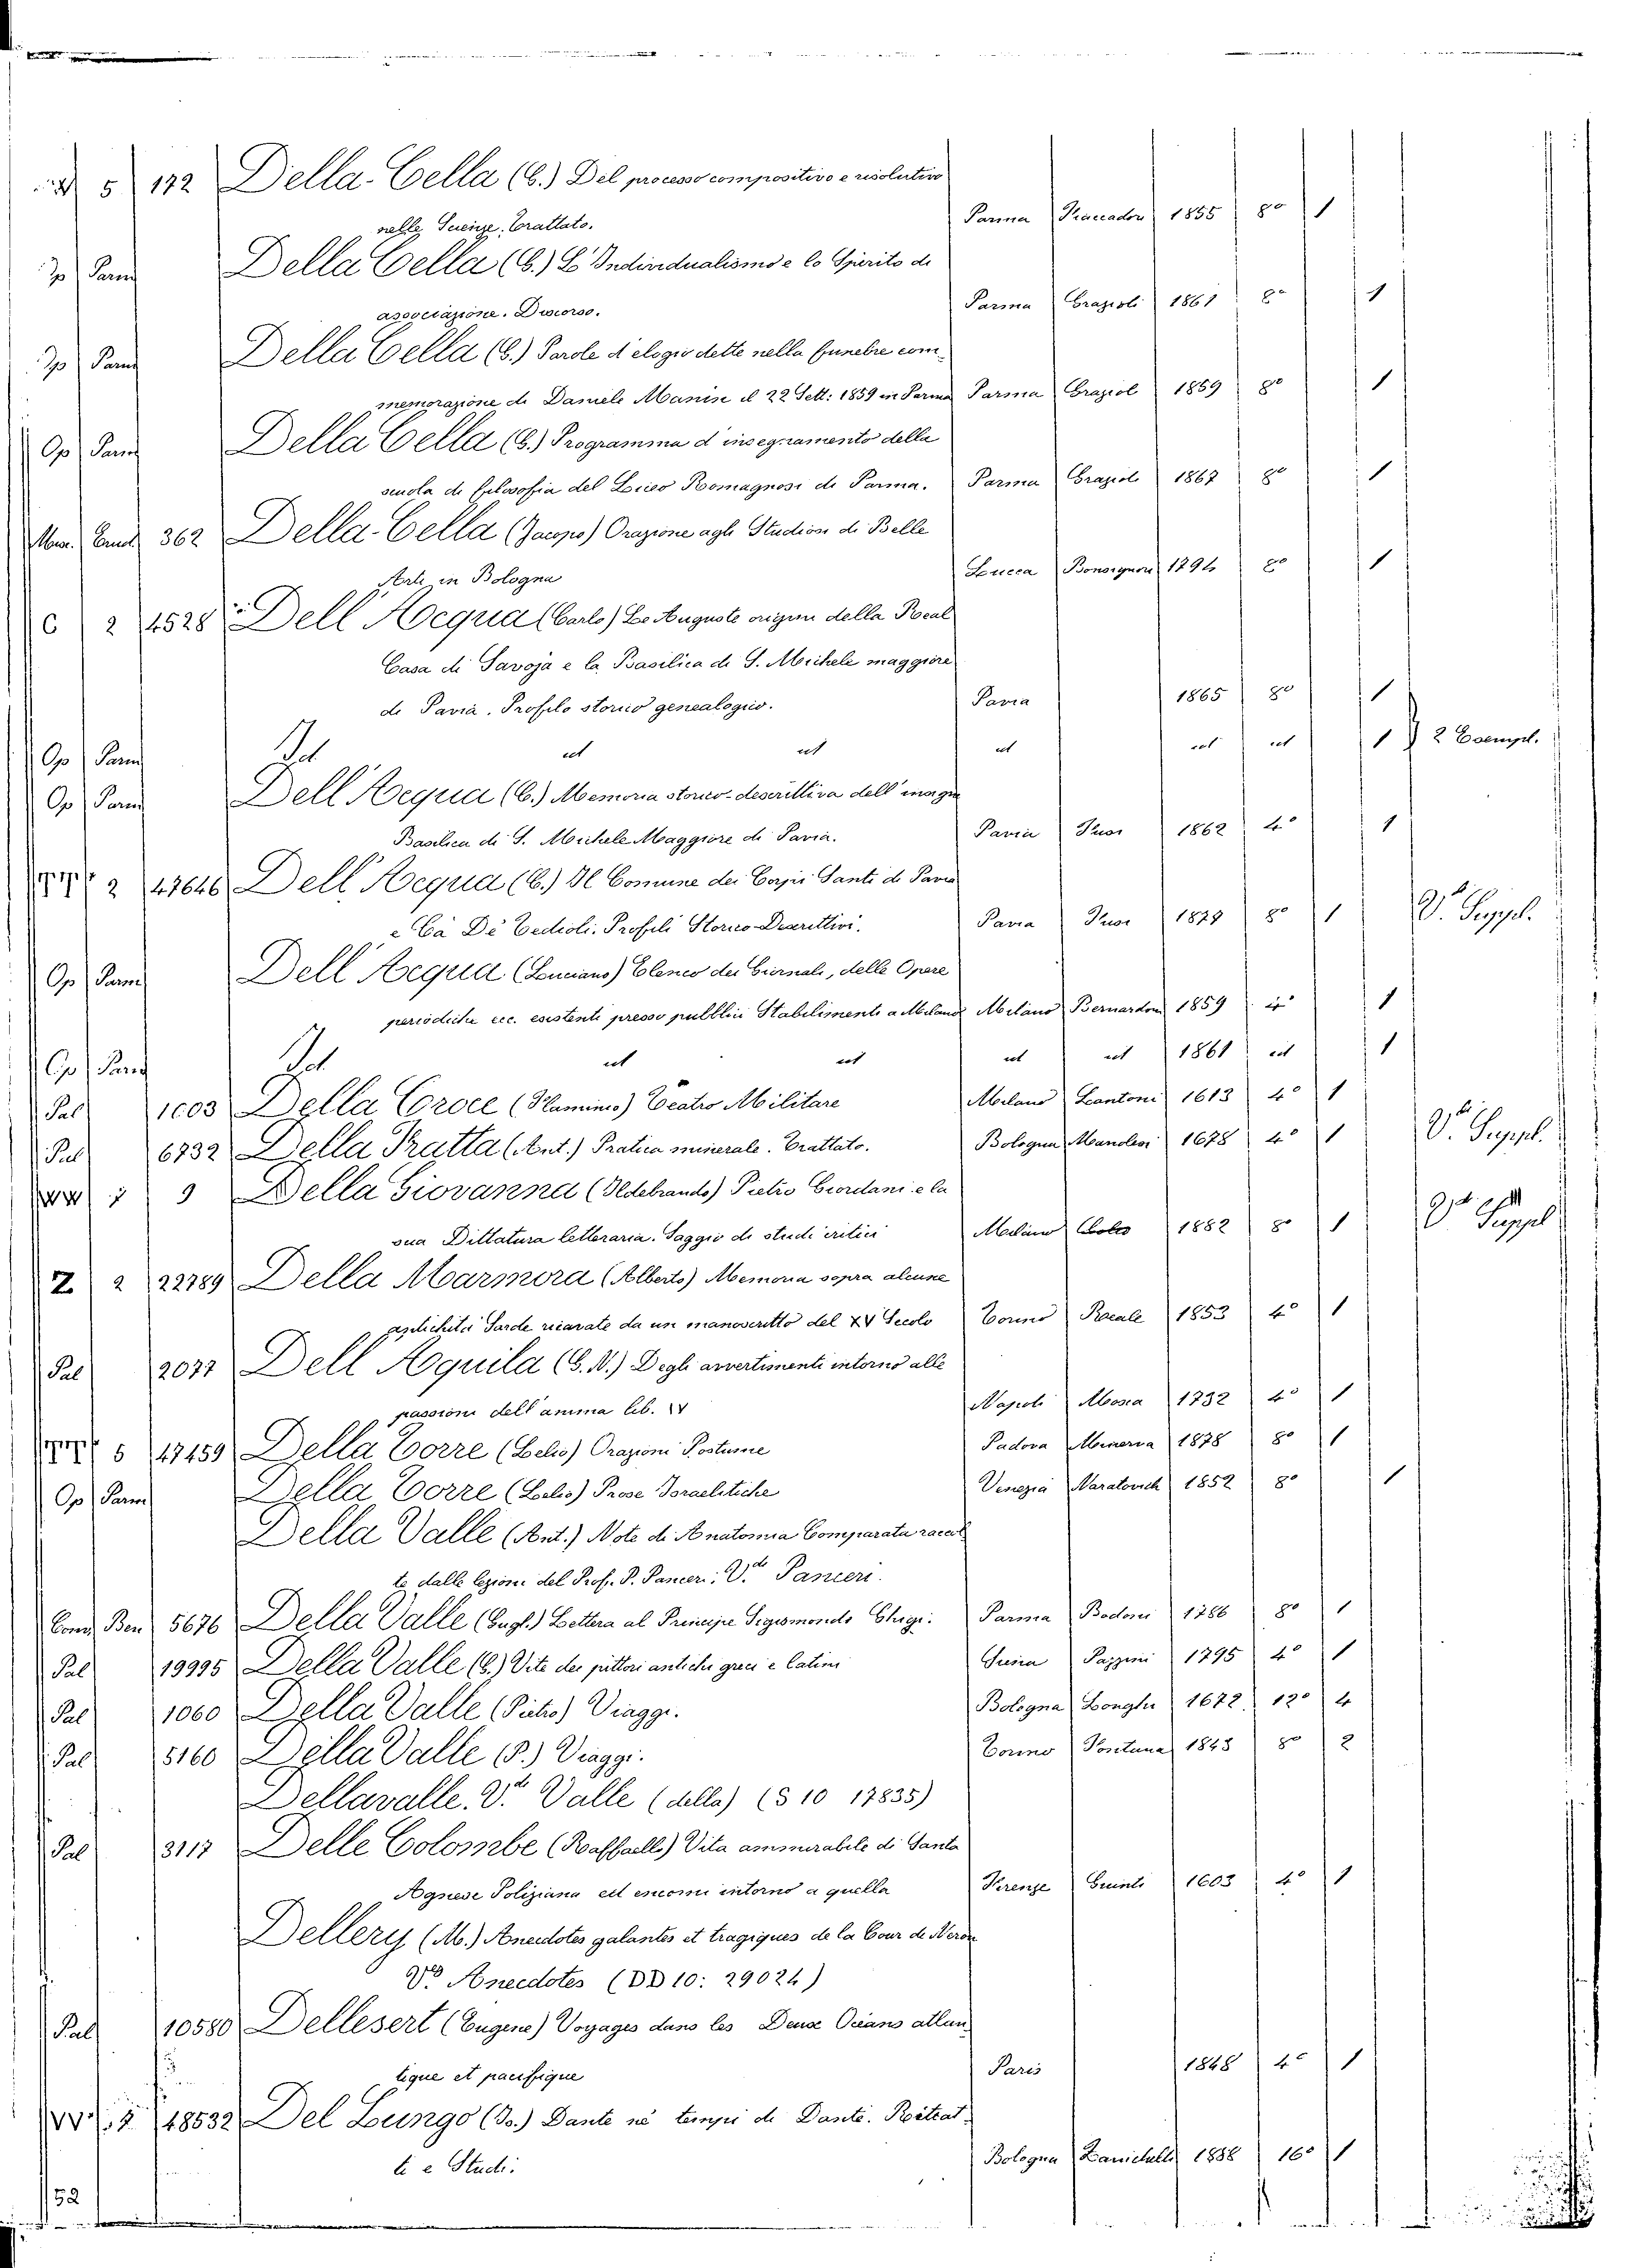 5 172 Della-Cella (C.) Del processo compositivo e risolutivo
nelle Scienze. Trattato. Parma 1855 8° 1
Op Parm Della Cella (C.) L'Individualismo e lo Spirito di
associazione. Discorso. Parma Grazioli 1861 8° 1
Op Parm Della Cella (C.) Parole d'elogio dette nella funebre com-
memorazione di Daniele Manin il 22 Sett: 1859 in Parma Parma Graziol 1859 8° 1
Op Parm Della Cella (C.) Programma d'insegnamento della
scuola di filosofia del Liceo Romagnosi di Parma. Parma Graziol 1867 8° 1
362 Della-Cella (Jacopo) Orazione agli Studiosi di Belle
Arti in Bologna Lucca Bonsignori 1794 8° 1
C 2 4528 Dell'Acqua (Carlo) Le Auguste origini della Real
Casa di Savoja e la Basilica di S. Michele maggiore
di Pavia. Profilo storico genealogico. Pavia 1865 8° 1
Op Parm Id ut ut ut ut ut 1 } 2 Esempl.
Op Parm Dell'Acqua (C.) Memoria storico-descrittiva dell'insigne
Basilica di S. Michele Maggiore di Pavia. Pavia Fusi 1862 4° 1
2 47646 Dell'Acqua (C.) Il Comune dei Corpi Santi di Pavia
e Cà De Tedioli. Profili Storico-Descrittivi. Pavia Fusi 1879 8° 1 V. Suppl.
Op Parm Dell'Acqua (Luciano) Elenco dei Giornali, delle Opere
periodiche ecc. esistenti presso pubblici Stabilimenti a Milano Milano Bernardoni 1859 4° 1
Op Parm Id ut ut ut ut 1861 ut 1
Pal 1003 Della Croce (Flaminio) Teatro Militare Milano Cantoni 1613 4° 1
Pal 6732 Della Fratta (Ant.) Pratica minerale. Trattato. Bologna Manolesi 1678 4° 1 V. Suppl.
9 Della Giovanna (Ildebrando) Pietro Giordani e la
sua Dittatura letteraria. Saggio di studi critici Milano 1882 8° 1 V. Suppl
Z 2 22789 Della Marmora (Alberto) Memoria sopra alcune
antichità Sarde ricavate da un manoscritto del XV Secolo Torino Reale 1853 4° 1
Pal 2077 Dell'Aquila (C. N.) Degli avvertimenti intorno alle
passioni dell'anima lib. IV Napoli Mosca 1732 4° 1
5 47459 Della Torre (Lelio) Orazioni Postume Padova Minerva 1878 8° 1
Op Parm Della Torre (Lelio) Prose Israelitiche Venezia Naratovich 1852 8° 1
Della Valle (Ant.) Note di Anatomia Comparata raccol
te dalle lezioni del Prof. P. Panceri. V.e Panceri.
Ben 5676 Della Valle (Gugl.) Lettera al Principe Sigismondo Chigi. Parma Bodoni 1786 8° 1
Pal 19995 Della Valle (G.) Vite dei pittori antichi greci e latini Siena Pazzini 1795 4° 1
Pal 1060 Della Valle (Pietro) Viaggi. Bologna Longhi 1672 12° 4
Pal 5160 Della Valle (P.) Viaggi. Torino Fontana 1843 8° 2
Dellavalle. V.e Valle (della) (S 10 17835)
Pal 3117 Delle Colombe (Raffaello) Vita ammirabile di Santa
Agnese Poliziana ed encomi intorno a quella Firenze Giunti 1603 4° 1
Dellery (M.) Anecdotes galantes et tragiques de la Cour de Neron
V.e Anecdotes (DD 10: 29024)
Pal 10580 Dellesert (Eugene) Voyages dans les Deux Océans atlan
tique et pacifique Paris 1848 4° 1
48532 Del Lungo (Is.) Dante nè tempi di Dante. Ritrat-
ti e Studi. Bologna Zanichelli 1888 16° 1
52